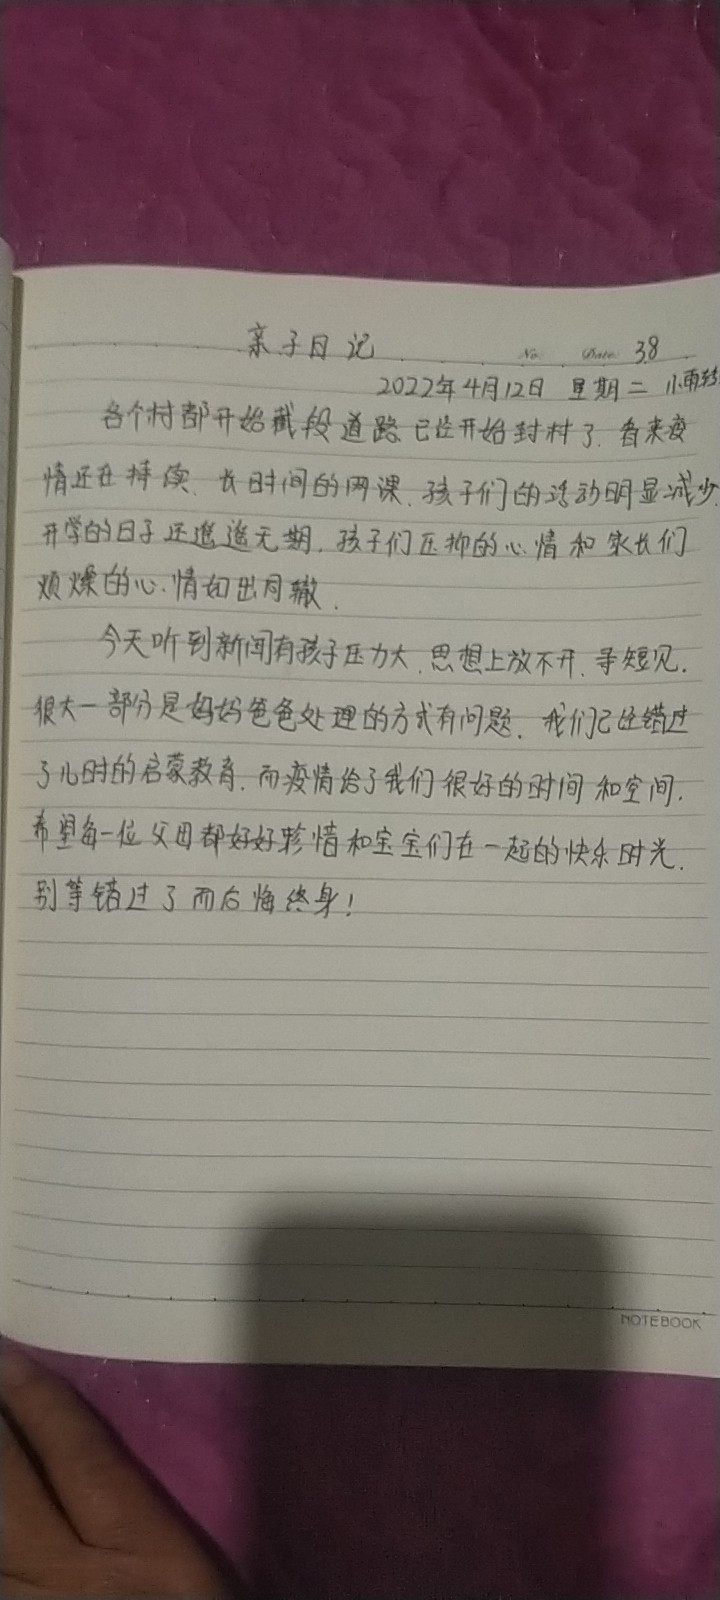 亲子日记
No. Date. 38
2022年4月12日 星期二 小雨转
各个村都开始截段道路、已经开始封村了、看来疫
情还在持续、长时间的网课、孩子们的活动明显减少、
开学的日子还遥遥无期、孩子们压抑的心情和家长们
烦燥的心情如出同辙、
今天听到新闻有孩子压力大、思想上放不开、寻短见、
很大一部分是妈妈爸爸处理的方式有问题、我们已经错过
了儿时的启蒙教育、而疫情给了我们很好的时间和空间、
希望每一位父母都好好珍惜和宝宝们在一起的快乐时光、
别等错过了而后悔终身!
NOTEBOOK